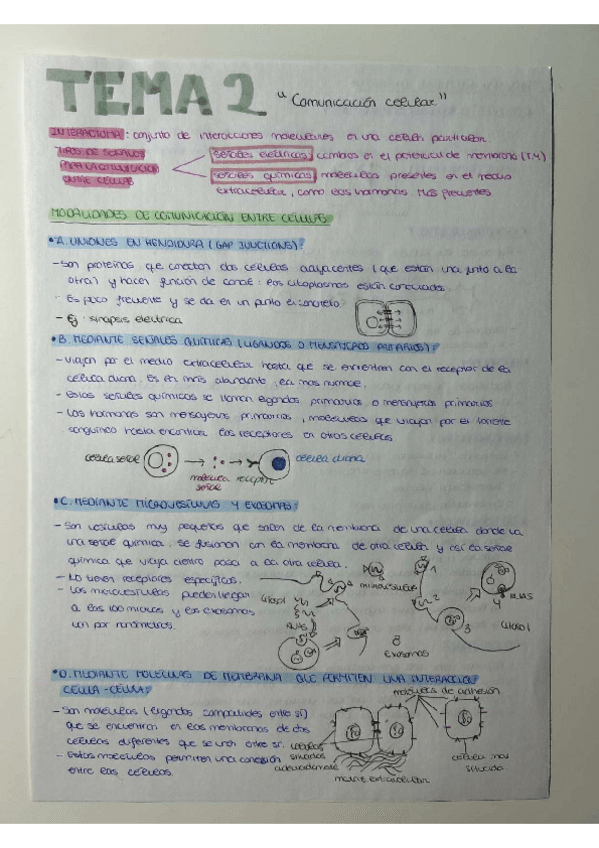 TEMA 2 "Comunicación celular"
INTERACTOMA: conjunto de interacciones moleculares en una célula particular.
TIPOS DE SEÑALES
PARA LA COMUNICACIÓN
ENTRE CÉLULAS
señales eléctricas: cambios en el potencial de membrana
señales químicas: moléculas presentes en el medio
extracelular, como las hormonas. Más frecuentes
MODALIDADES DE COMUNICACIÓN ENTRE CÉLULAS
• A. UNIONES EN HENDIDURA (GAP JUNCTIONS):
- Son proteínas que conectan dos células adyacentes (que están una junto a la
otra) y hacen función de canal: los citoplasmas están conectados.
- Es poco frecuente y se da en un punto concreto
- Ej: sinapsis eléctrica
• B. MEDIANTE SEÑALES QUÍMICAS (LIGANDOS O MENSAJEROS PRIMARIOS):
- Viajan por el medio extracelular hasta que se encuentran con el receptor de la
célula diana. Es en más abundante, la más normal.
- Estas señales químicas se llaman ligandos primarios o mensajeros primarios
- Las hormonas son mensajeros primarios, moléculas que viajan por el torrente
sanguíneo hasta encontrar los receptores en otras células
célula señal
molécula
señal
receptor
célula diana
• C. MEDIANTE MICROVESÍCULAS Y EXOSOMAS:
- Son vesículas muy pequeñas que salen de la membrana de una célula donde va
una señal química. Se fusionan con la membrana de otra célula y así la señal
química que viaja dentro pasa a la otra célula.
- No tienen receptores específicos.
- Las microvesículas pueden llegar
a las 100 micras y los exosomas
un par nanómetros.
microvesículas
citosol
RNAS
exosomas
1
2
3
4
RNAS
citosol
• D. MEDIANTE MOLÉCULAS DE MEMBRANA QUE PERMITEN UNA INTERACCIÓN
CÉLULA-CÉLULA:
- Son moléculas (ligandos compatibles entre sí)
que se encuentran en las membranas de dos
células diferentes que se unen entre sí.
- Estas moléculas permiten una conexión
entre las células.
moléculas de adhesión
células
situadas
adecuadamente
matriz extracelular
célula mal
situada